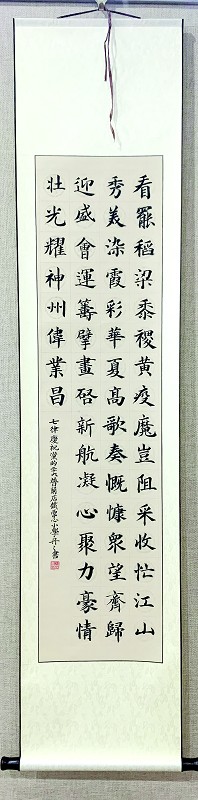 看罷稻粱黍稷黄疫魔豈阻采收忙江山
秀美染霞彩華夏高歌奏慨慷衆望齊歸
迎盛會運籌擘畫啓新航凝心聚力豪情
壯光耀神州偉業昌
七律慶祝黨的二十